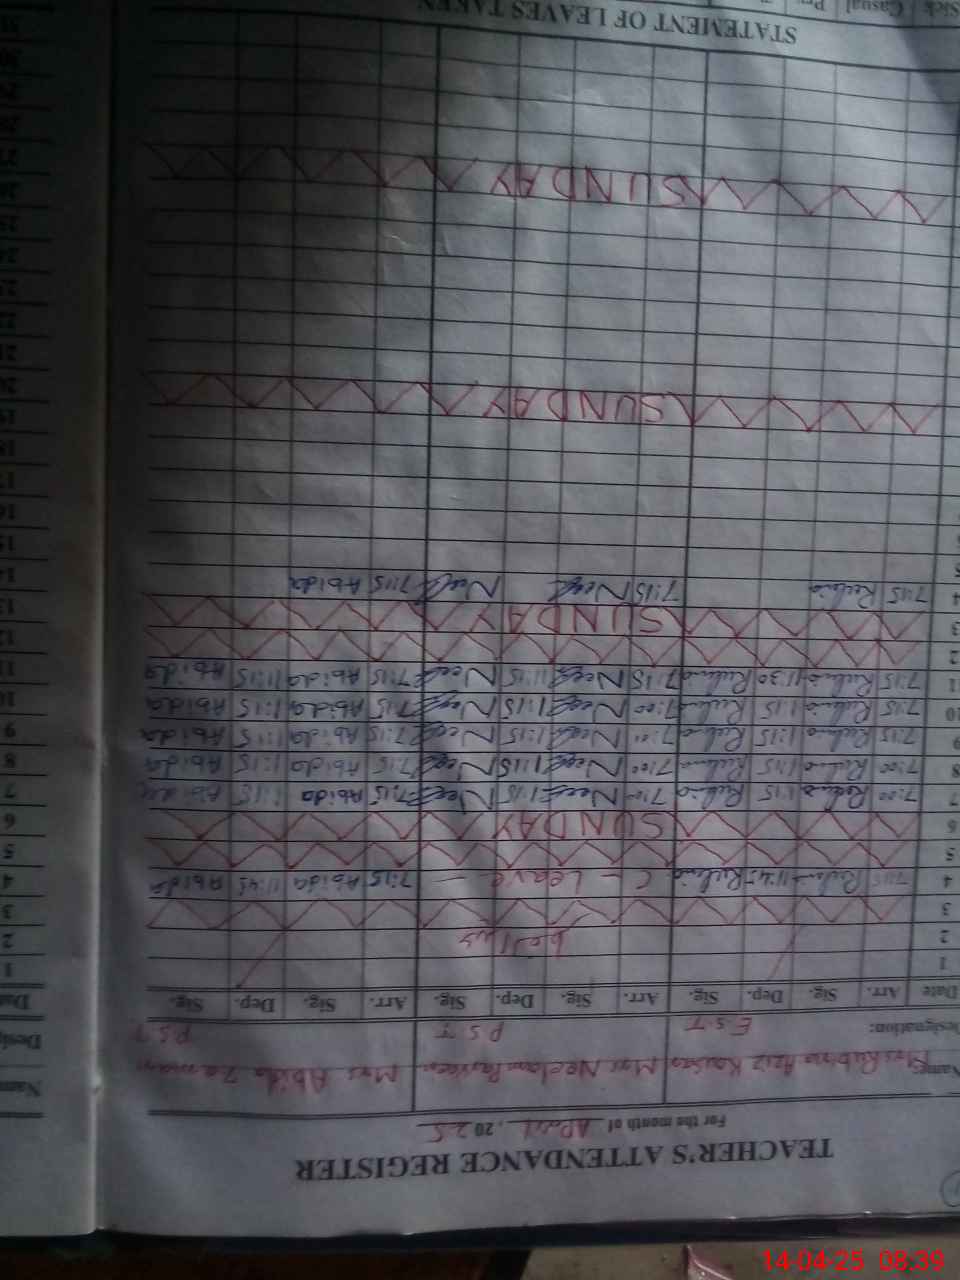 TEACHER'S ATTENDANCE REGISTER
For the month of April, 2025
Name: Mrs Rubina Aziz Kausar Mrs Neelam Parveen Mrs Abida Zaman
Designation: E.S.T P.S.T P.S.T
Date Arr. Sig. Dep. Sig. Arr. Sig. Dep. Sig. Arr. Sig. Dep. Sig.
1
2
3
4 7:15 Rubina 11:45 Rubina C - Leave - 7:15 Abida 11:45 Abida
5
6 SUNDAY
7 7:00 Rubina 1:15 Rubina 7:00 Neel 1:15 Neel 7:15 Abida 1:15 Abida
8 7:00 Rubina 1:15 Rubina 7:00 Neel 1:15 Neel 7:15 Abida 1:15 Abida
9 7:15 Rubina 1:15 Rubina Neel 1:15 Neel 7:15 Abida 1:15 Abida
10 7:15 Rubina 1:15 Rubina 7:00 Neel 1:15 Neel 7:15 Abida 1:15 Abida
11 7:15 Rubina 11:30 Rubina 7:15 Neel 11:15 Neel 7:15 Abida 11:15 Abida
2
3 SUNDAY
4 7:15 Rubina 7:15 Neel Neel 7:15 Abida
5
SUNDAY
SUNDAY
STATEMENT OF LEAVES TAKEN
Sick Casual
Name
Desig
Dat
1
2
3
4
5
6
7
8
9
10
11
12
13
14
15
16
17
18
19
20
21
22
23
24
25
26
27
28
29
30
31
14-04-25 08:39